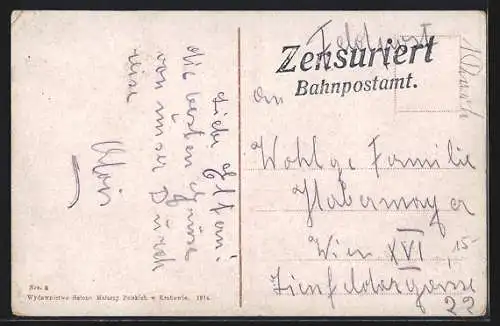 Liebe Eltern!
die besten Grüsse
von unser Durch
reise
Alois
Nro. 8
Wydawnictwo Salonu Malarzy Polskich w Krakowie. 1914.
Feldpost
Zensuriert
Bahnpostamt.
An
Wohlge Familie
Habermayer
Wien XVI
15-
22